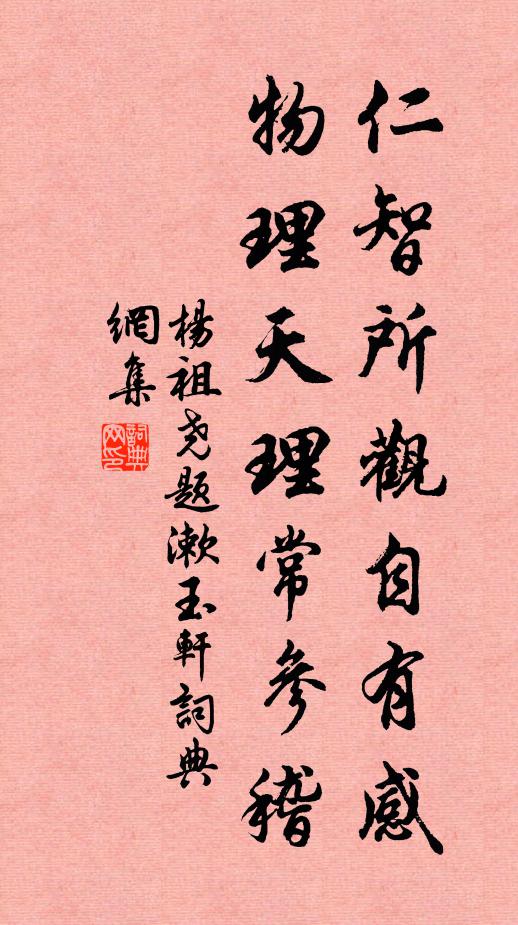 仁智所觀自有感
物理天理常參稽
楊祖尧题漱玉軒詞典
網集
詞典
网印